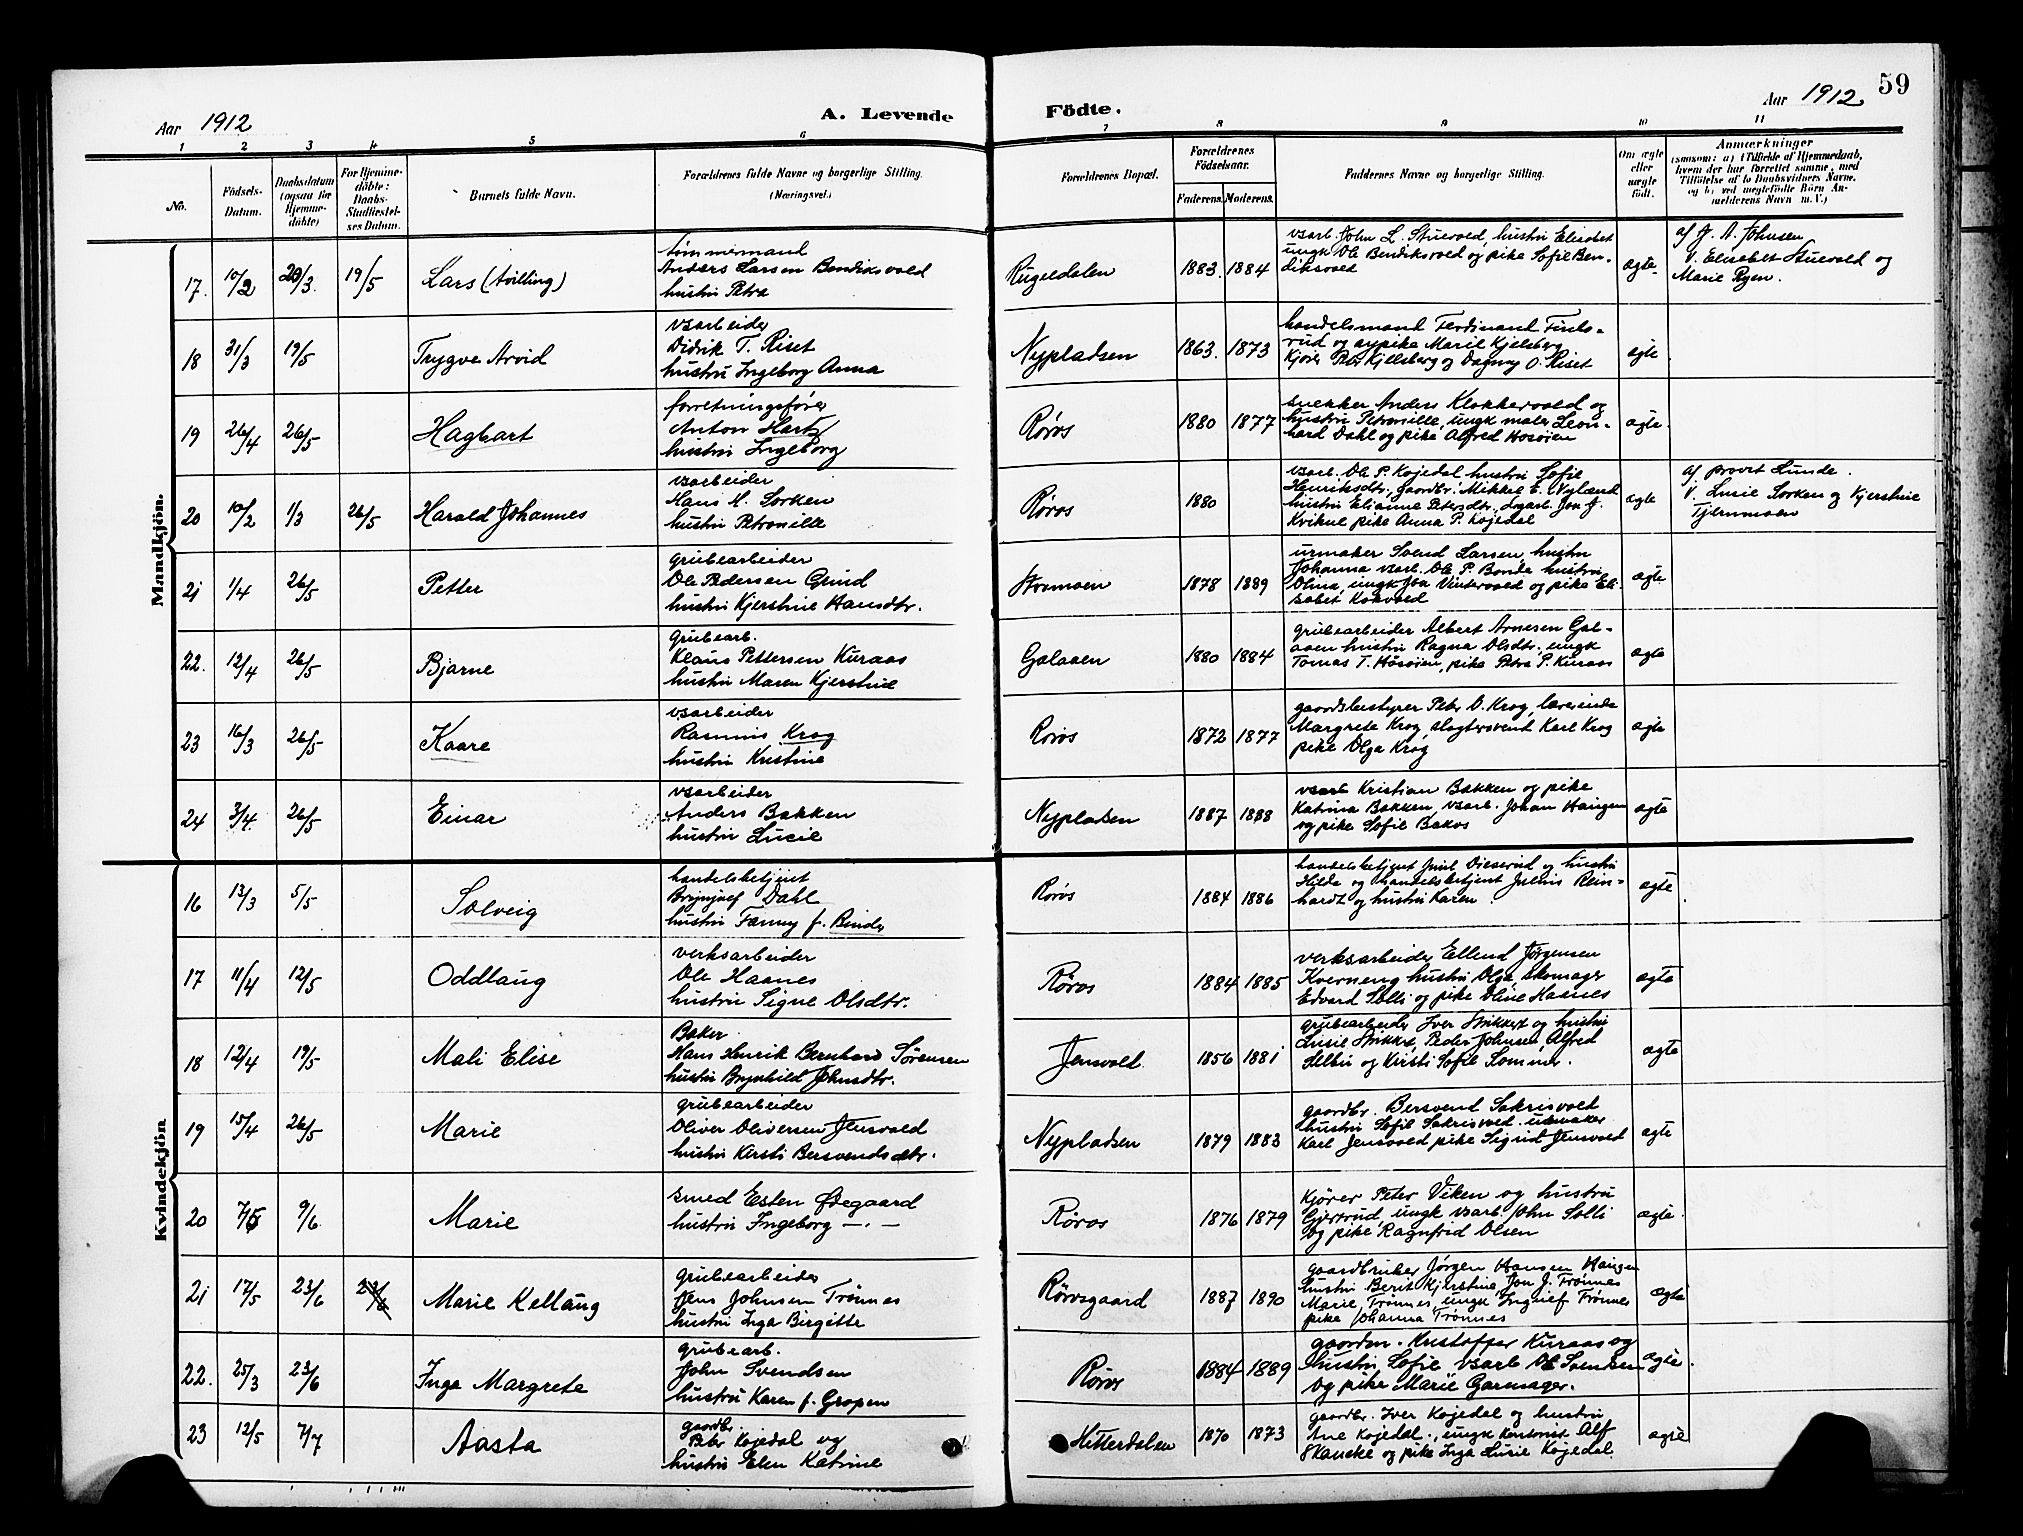 59
Aar 1912
A. Levende Födte.
Aar 1912
1 2 3 4 5 6 7 8 9 10 11
No.
Födsels-Datum.
Daabsdatum (ogsaa for Hjemme-döbte)
For Hjemme-döbte: Daabs-Stadfæstel-ses Datum.
Barnets fulde Navn.
Forældrenes fulde Navne og borgerlige Stilling.
(Næringsvei.)
Forældrenes Bopæl.
Forældrenes Födselsaar.
Faderens. Moderens.
Faddernes Navne og borgerlige Stilling.
Om ægte eller uægte født.
Anmærkninger
(saasom: a) i Tilfælde af Hjemmedaab, hvem der har forrettet samme, med Tilföielse af to Daabsvidners Navne, og b) ved uægtefödte Börn Anmelderens Navn m. V.)
Mandkjön.
17. 10/2 23/3. 19/5 Lars (tvilling)
tømmermand
Anders Larsen Bendiksvold
hustru Petra
Rugeldalen 1883. 1884
vsarb. John L. Stuevold, hustru Elisabet
ungk Ole Bendiksvold og pike Sofie Ben-
diksvold
ægte.
af J. A. Johnsen
V. Elisabet Stuevold og
Marie Ryen.
18 31/3 19/5 Trygve Arvid
vsarbeider
Didrik T. Riset
hustru Ingeborg Anna
Nypladsen 1863. 1873
handelsmand Ferdinand Finds-
rud og pike Marie Kjelsberg
Kjører Peter Kjelsberg og Dagny O. Riset
ægte
19 26/4 26/5 Hagbart
forretningsfører
Anton Hartz
hustru Ingeborg
Røros 1880 1877
snekker Anders Klokkervold og
hustru Petronille, ungk maler Leon-
hard Dahl og pike Alfred Hosøien
ægte.
20 10/2 1/3 26/5 Harald Johannes
vsarbeider
Hans M. Sorken
hustru Petronille
Røros 1880
vsarb. Ole P. Kojedal hustru Sofie
Henriksdtr, gaardbr. Mikkel E. Nyland
hustru Elianne Petersdtr. Jon J.
Kvikne pike Anna P. Kojedal
ægte
af provst Lunde.
V. Lusie Sorken og Kjerstine
Tjernmoen
21 1/4 26/5 Petter
grubearbeider
Ole Pedersen Grind
hustru Kjerstine Hansdtr.
Stormoen 1878 1889
urmaker Svend Larsen, hustru
Johanna vsarb. Ole P. Bonde hustru
Olina, ungk Jon Vintervold og pike Eli-
sabet Kokvold
ægte
22. 12/4 26/5 Bjarne
grubearb.
Klaus Pettersen Kuraas
hustru Maren Kjerstine
Galaaen 1880 1884
grubearbeider Albert Arnesen Gal-
aaen hustru Ragna Olsdtr. ungk
Tomas T. Hosøien, pike Petra P. Kuraas
ægte
23 16/3 26/5 Kaare
vsarbeider
Rasmus Krog
hustru Kristine
Røros 1872 1877
gaardsbestyrer Peter O. Krog, lærerinde
Margrete Krog, slagtersvent Karl Krog
pike Olga Krog
ægte
24 3/4. 26/5 Einar
vsarbeider
Anders Bakken
hustru Lusie
Nypladsen 1887 1888
vsarb Kristian Bakken og pike
Katrina Bakken, vsarb. Johan Haugen
og pike Sofie Bakos
ægte
Kvindekjön
16 13/3 5/5 Solveig
handelsbetjent
Brynjulf Dahl
hustru Fanny f. Binder
Røros 1884 1886
handelsbetjent Dieserud og hustru
Hilda og handelsbetjent Julius Rein-
hardt og hustru Karen
ægte
17 11/4 12/5 Oddlaug
verksarbeider
Ole Haanes
hustru Signe Olsdtr.
Røros 1884 1885
verksarbeider Ellend Jørgensen
Kverneng hustru Olga, skomager
Edvard Solli og pike Oline Haanes
ægte
18 12/4 19/5 Mali Elise
Baker
Hans Henrik Bernhard Sørensen
hustru Brynhild Johnsdtr.
Jensvold 1856 1881
grubearbeider Iver Strikkert og hustru
Lusie Strikkert, Peder Johnsen, Alfred
og Kirsti Sofie
ægte
19 15/4 26/5 Marie
grubearbeider
Oliver Oliversen Jensvold
hustru Kirsti Bersvendsdtr.
Nypladsen 1879 1883
gaardbr. Bersvend Sakrisvold
hustru Sofie Sakrisvold. urmaker
Karl Jensvold pike Sigrid Jensvold
ægte
20 7/5 9/6 Marie
smed Esten Ødegaard
hustru Ingeborg —.—
Røros 1876 1879
Kjører Peter Viken og hustru
Gjertrud, ungk vsarb. John Solli
og pike Ragnfrid Olsen
ægte.
21 17/5 23/6 23/6 Marie Kellaug
grubearbeider
Jens Johnsen Trønnes
hustru Inga Birgitte
Rørosgaard 1887 1890
gaardbruker Jørgen Hansen Haugen
hustru Berit Kjerstine, Jon J. Trønnes
Marie Trønnes, ungk Trønnes
pike Johanna Trønnes
ægte
22. 25/3 23/6 Inga Margrete
grubearb.
John Svendsen
hustru Karen f. Gropen
Røros 1884 1889
gaardm. Kristoffer Kuraas og
hustru Sofie vsarb Ole Svendsen
og pike Marie Garmager.
ægte.
23 12/5 7/7 Aasta
gaardbr.
Peter Kojedal og
hustru Elen Katrine
Hitterdalen 1870 1873
gaardbr. Iver Kojedal og hustru
Ane Kojedal., ungk kontorist Alf
Skancke og pike Inga Lusie Kojedal
ægte